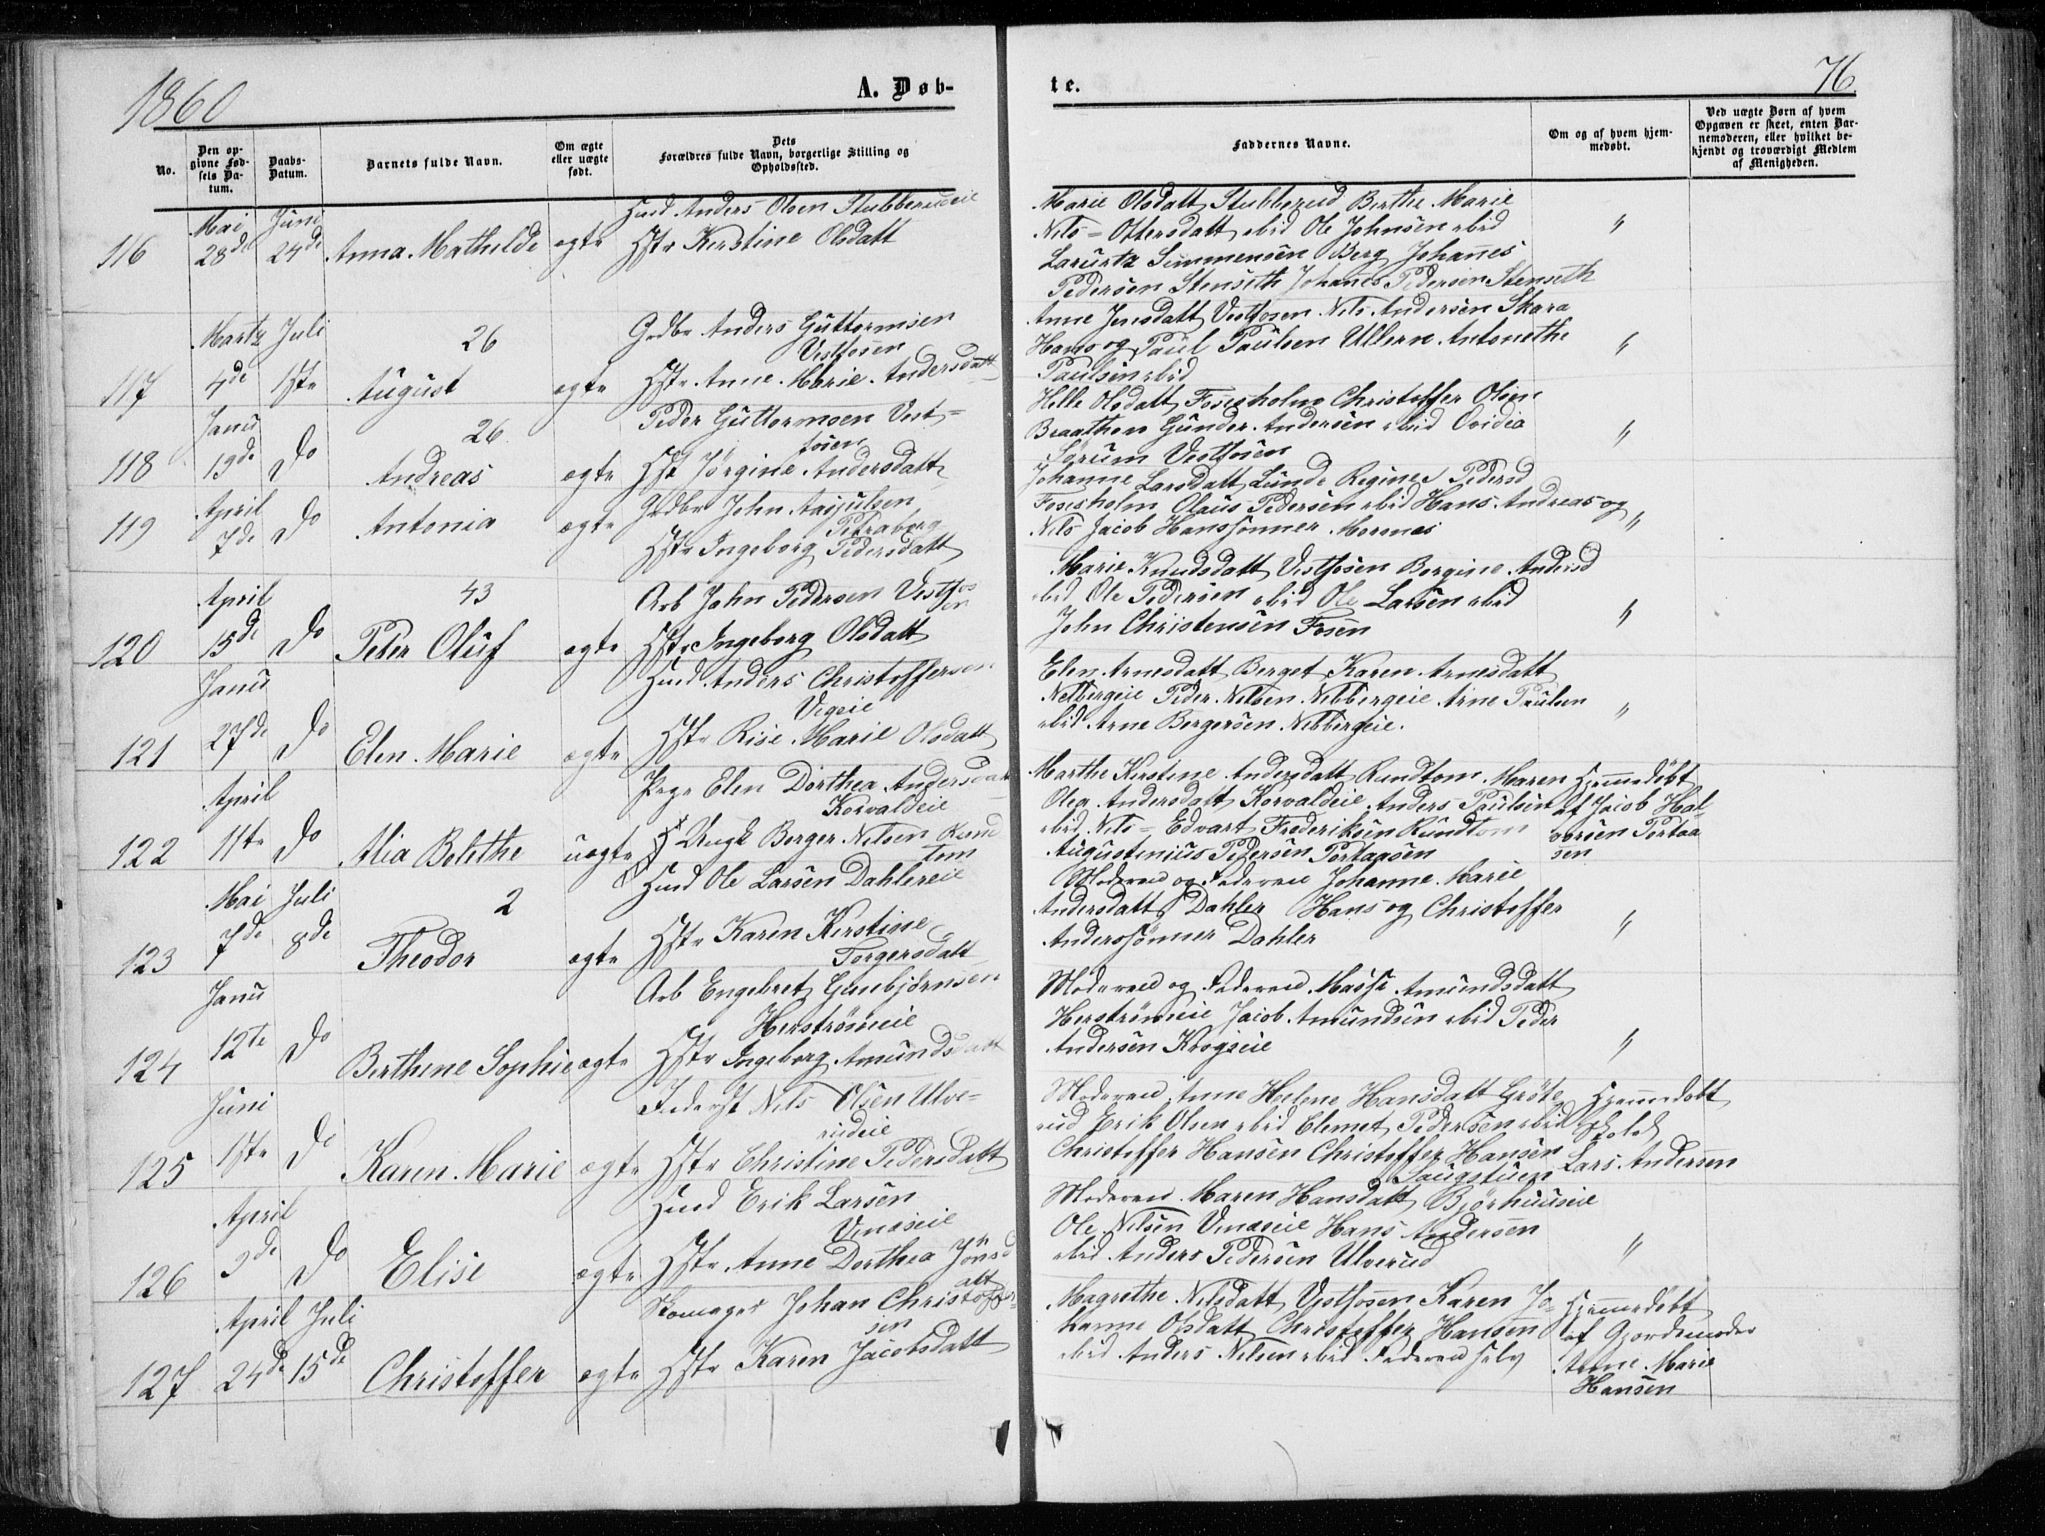 1860
A. Døb-
te.
76.
No.
Den op-
givne Fød-
sels Da-
tum.
Daabs-
Datum.
Barnets fulde Navn.
Om ægte
eller uægte
født.
Dets
Forældres fulde Navn, borgerlige Stilling og
Opholdssted.
Faddernes Navne.
Om og af hvem hjem-
medøbt.
Ved uægte Børn af hvem
Opgaven er skeet, enten Bar-
nemoderen, eller hvilket be-
kjendt og troværdigt Medlem
af Menigheden.
116
Mai
28de
Juni
24de
Anna Mathilde
ægte
Husd Anders Olsen Stubberudeie
Hstr Kirstine Olsdatt
Marie Olsdatt Stubberud Berthe Marie
Nils = Ottersdatt ibid Ole Johnsen ibid
Simmensen Berg Johanes
Pedersen Stenseth Johanes Pedersen Stenseth
"
117
Martz
4de
Juli
1ste
26
August
ægte
Grdbr Anders Guttormsen
Vestfosen
Hstr Anne Marie Andersdatt
Anne Jensdatt Vestfosen Nils Andersen Skara
Hans og Paul Paulsen Ullern Antonethe
Paulsen ibid
"
118
Janu
19de
Do
26
Andreas
ægte
Peder Guttormsen Vest=
fosen
Hst Jørgine Andersdatt
Helle Olsdatt Fosesholm Christoffer Olsen
Braathen Gunder Andersen ibid Ovidia
Sørum Vestfosen
"
119
April
7de
Do
Antonia
ægte
Grdbr John
Petraborg
Hstr Ingeborg Pedersdatt
Johanne Larsdatt Lunde Regine Pedersd
Fosesholm Olaus Pedersen ibid Hans Andreas og
Nils Jacob Hanssønner
"
120
April
15de
Do
43
Peter Oluf
ægte
Arb John Pedersen Vestfos
en
Hstr Ingeborg Olsdatt
Marie Knudsdatt Vestfosen Borgine Andersd
ibid Ole Pedersen ibid Ole Larsen ibid
John Christensen Fosen
"
121
Janu
27de
Do
Elen Marie
ægte
Husd Anders Christoffersen
Vegeie
Hstr Rise Marie Olsdatt
Elen Arnesdatt Berget Karen Arnesdatt
Nebbergeie Peder Nilsen Nebbergeie Arne Paulsen
ibid Arne Borgersen Nebbergeie.
"
122
April
11te
Do
Alia Belethe
uægte
Pige Elen Dorthea Andersdatt
Korvaldeie
Ungk Borger Nilsen Rund
tom
Marthe Kirstine Andersdatt Rundtom Maren
Olea Andersdatt Korvaldeie Anders Paulsen
ibid Nils = Edvart Frederiksen Rundtom
Augustinius Pedersen Portaasen
Hjemmedøbt
af Jacob Hal-
vorsen Portaa
sen
123
Mai
7de
Juli
8de
2
Theodor
ægte
Husd Ole Larsen Dahlereie
Hstr Karen Kirstine
Torgersdatt
Moderen og Faderen Johanne Marie
Andersdatt Dahler Hans og Christoffer
Anderssønner Dahler
"
124
Janu
12te
Do
Berthine Sophie
ægte
Arb Engebret Gunbjørnsen
Herstrømeie
Hstr Ingeborg Amundsdatt
Moderen og Faderen Masse Amundsdatt
Herstrømeie Jacob Amundsen ibid Peder
Andersen Krogseie
"
125
Juni
1ste
Do
Karen Marie
ægte
Inderst Nils Olsen Ulve-
rudeie
Hstr Christine Pedersdatt
Moderen Anne Helene Hansdatt Grøte
rud Erik Olsen ibid Clemet Pedersen ibid
Christoffer Hansen Christoffer Hansen
Saugstuen
Hjemmedøbt
Lars Andersen
126
April
9de
Do
Elise
ægte
Husd Erik Larsen
Vinæseie
Hstr Anne Dorthea Jønsd
att
Moderen Maren Hansdatt Bjørhuuseie
Ole Nilsen Vinæseie Hans Andersen
ibid Anders Pedersen Ulverud
"
127
April
24de
Juli
15de
Christoffer
ægte
Skomager Johan Christoffer-
sen
Hstr Karen Jacobsdatt
Magrethe Nilsdatt Vestfosen Karen Jo-
hanne Olsdatt Christoffer Hansen
ibid Anders Nilsen ibid Faderen selv
Hjemmedøbt
af Gjordemoder
Anne Marie
Hansen